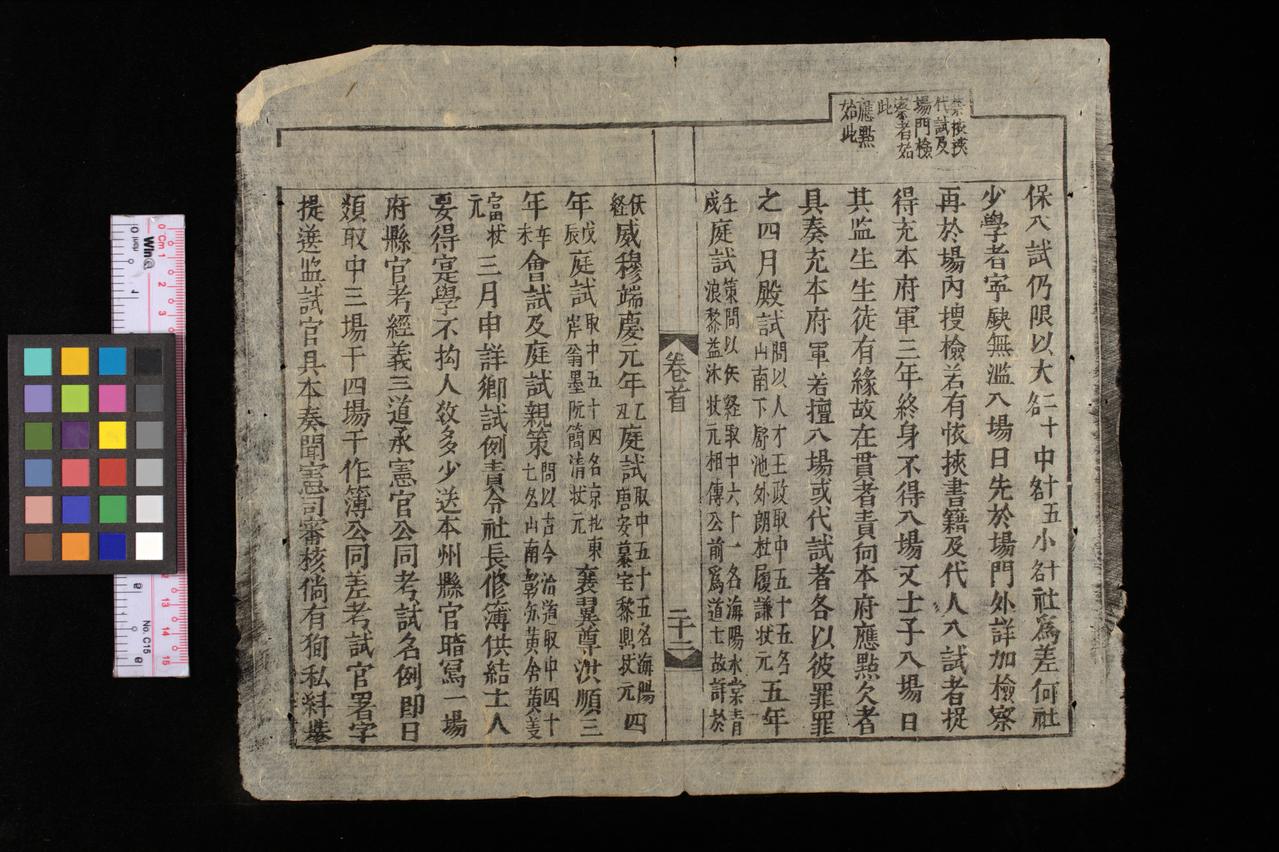 禁挾挾
代試及
場門檢
察者始
此
應點
始此
保入試仍限以大名二十中名十五小名十社爲差何社
少學者寜缺無濫入場日先於塲門外詳加檢察
再於塲內搜檢若有恢挾書籍及代人入試者提
得充本府軍三年終身不得入塲又士子入塲日
其监生生徒有緣故在貫者責向本府應點欠者
具奏充本府軍若擅入塲或代試者各以彼罪罪
之四月殿試問以人才王政取中五十五名山南下舒池外朗杜履謙状元五年
壬戌庭試策問以佚經取中六十一名海陽水棠青浪黎益沐状元相傳公前爲道士故詳於
佚經威穆端慶元年乙丑庭試取中五十五名海陽唐安慕宅黎鼎状元四
年戊辰庭試取中五十四名京北東岸翁墨阮簡清状元襄翼尊洪順三
年辛未會試及庭試親策問以古今治道取中四十七名山南彰㳽黃舍黃義
富状元三月申詳鄉試例責令社長修簿供結士人
要得寔學不拘人数多少送本州縣官暗寫一塲
府縣官考經義三道承憲官公同考試名例即日
類取中三塲干四塲干作簿公同差考試官署字
提遴监試官具本奏聞憲司審核倘有徇私糾舉
卷首
二十二
Win@
Cm 1
2
3
13
14
15
No. C15